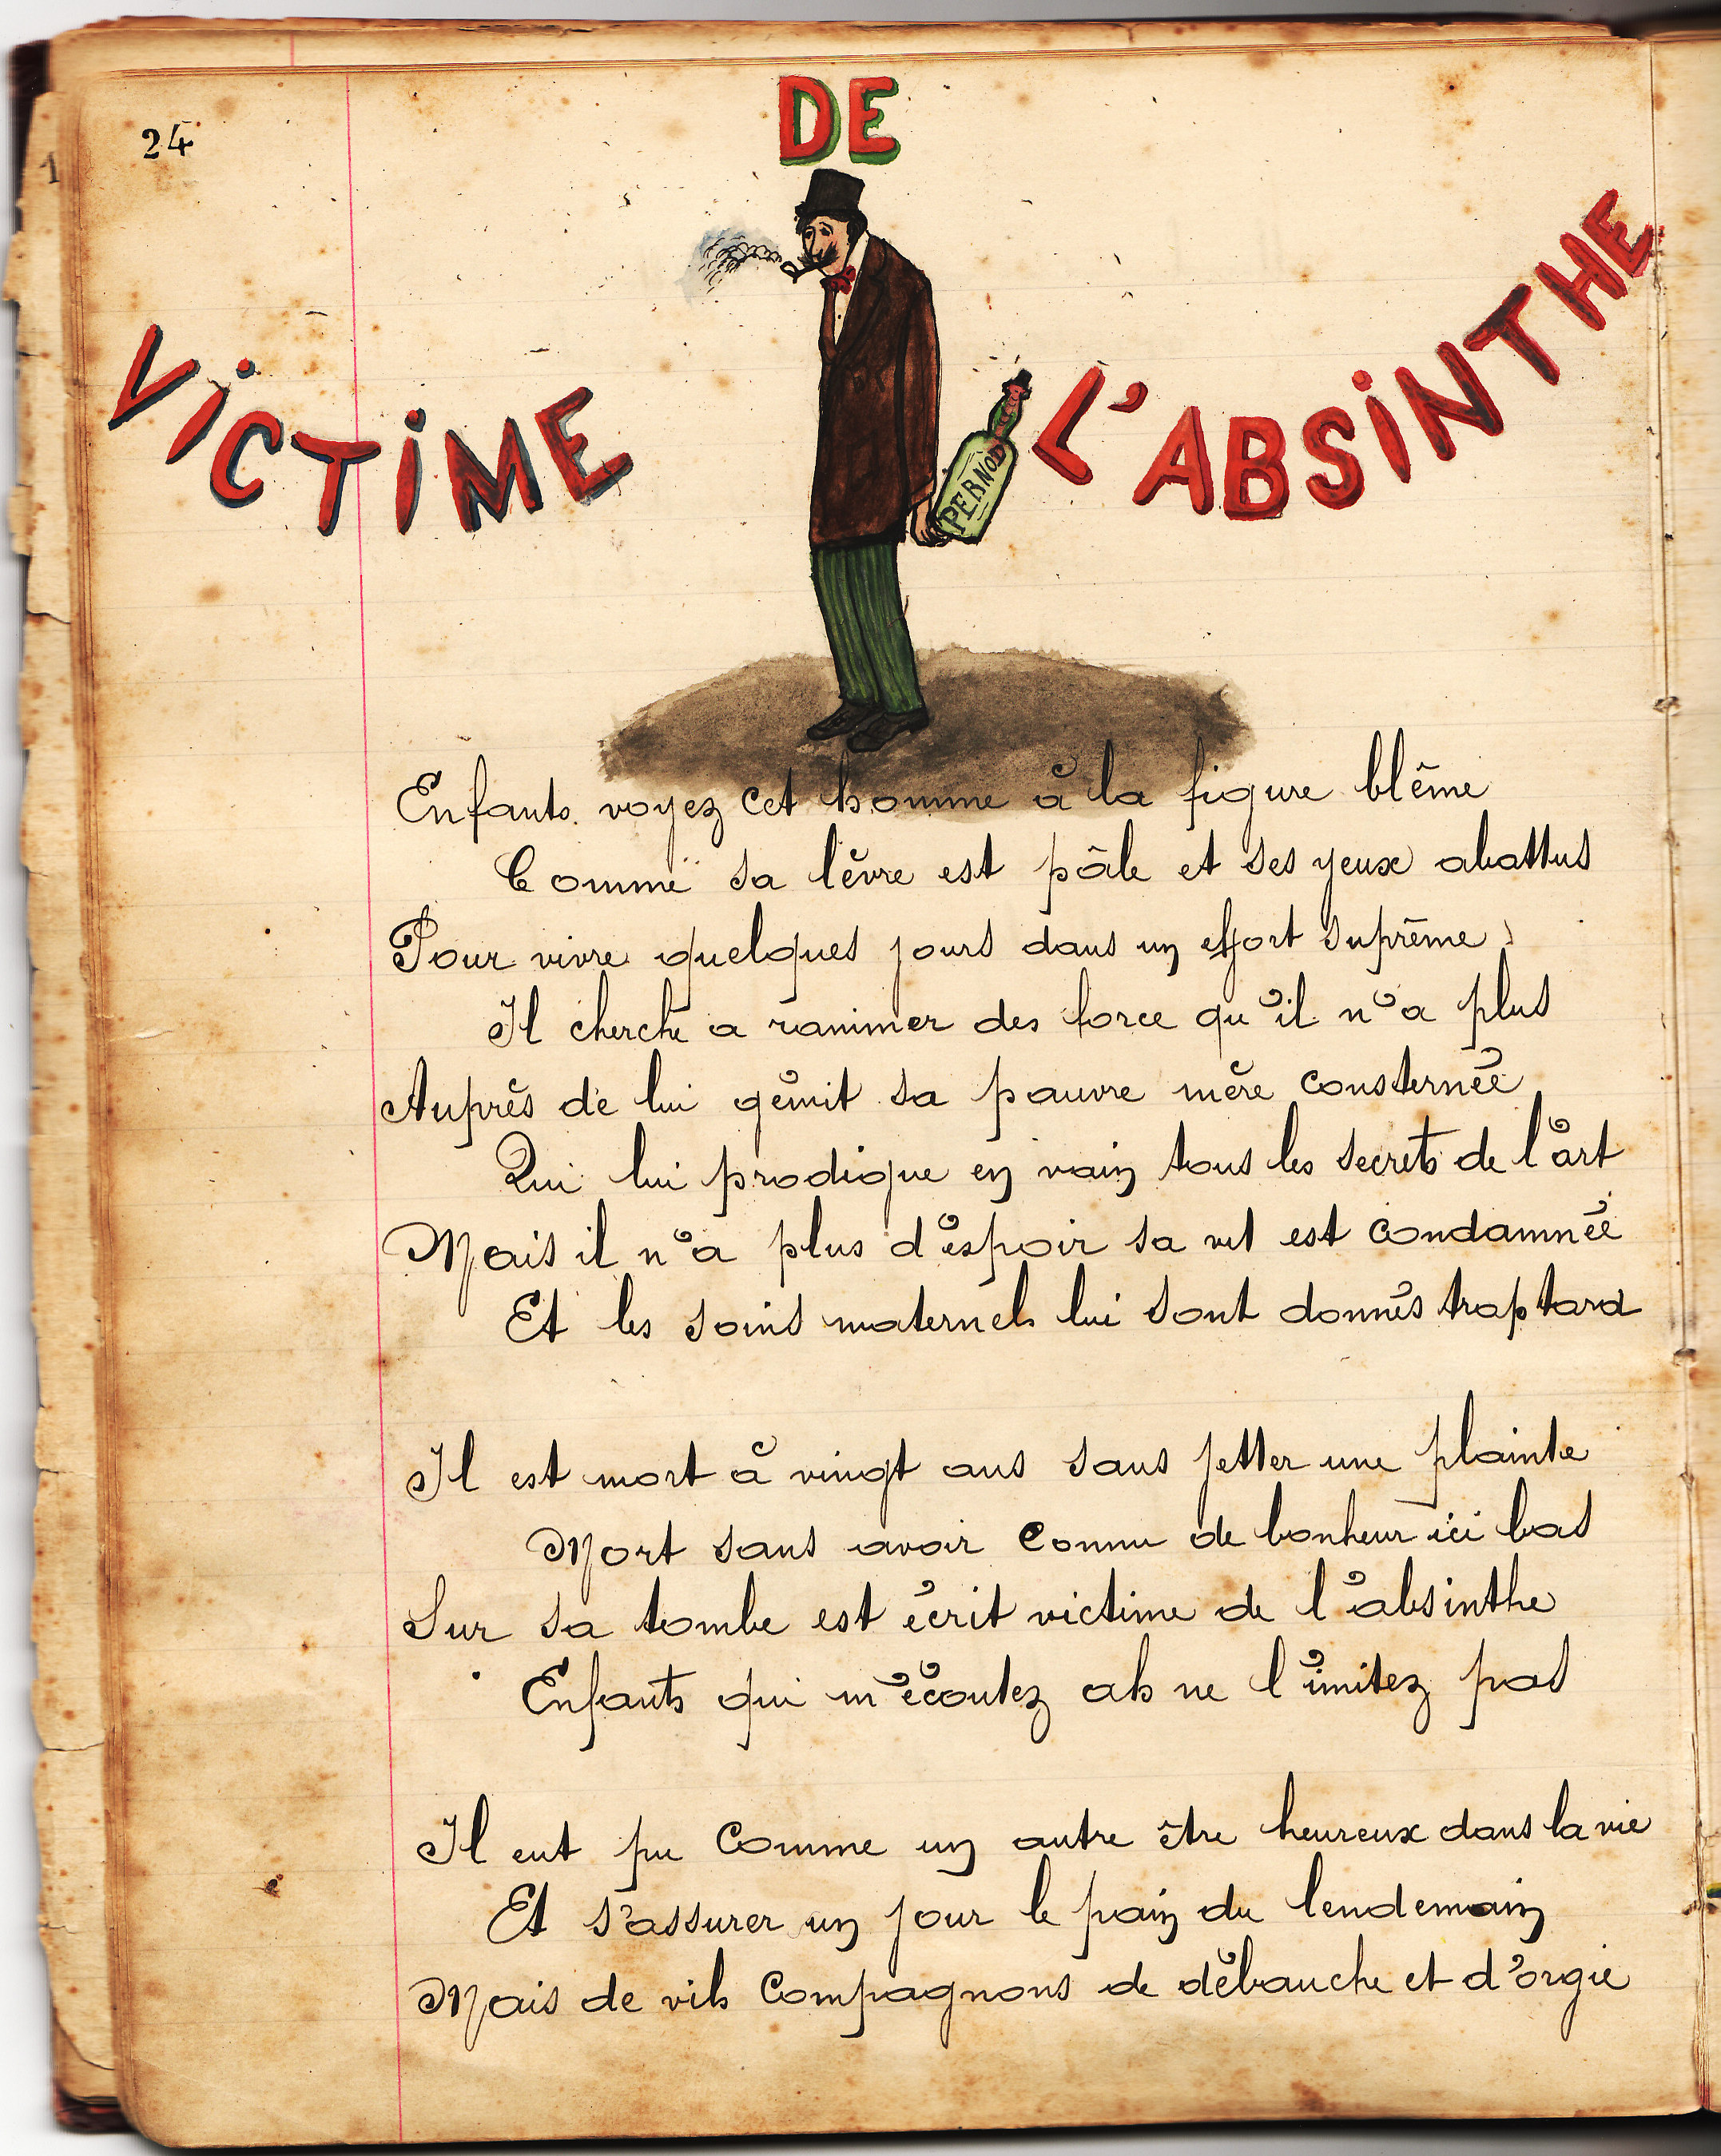 24
VICTIME DE L'ABSINTHE
PERNOD
Enfants voyez cet homme à la figure blême
Comme sa lèvre est pâle et ses yeux abattus
Pour vivre quelques jours dans un effort suprême
Il cherche a ranimer des force qu'il n'a plus
Auprès de lui gémit sa pauvre mère consternée
Qui lui prodigue en vain tous les secrets de l'art
Mais il n'a plus d'espoir sa vie est condamnée
Et les soins maternels lui sont donnés trop tard
Il est mort à vingt ans sans jetter une plainte
Mort sans avoir connu de bonheur ici bas
Sur sa tombe est écrit victime de l'absinthe
Enfants qui m'écoutez ah ne l'imitez pas
Il eut pu comme un autre être heureux dans la vie
Et s'assurer un jour le pain du lendemain
Mais de vils compagnons de débauche et d'orgie